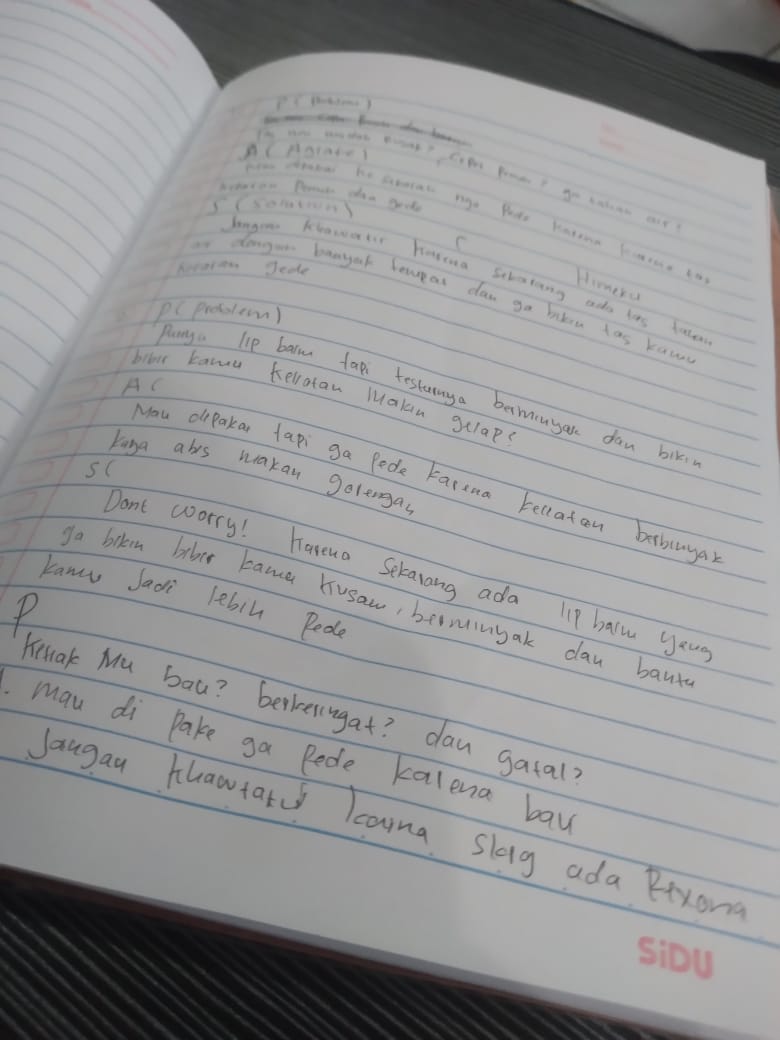 P ( Problem )
A ( Agitate )
mau dipakai ke sekolah nga Pede karena karna tas
keliatan Penuh dan gede
S ( Solution ) (
Jangan khawatir karena sekarang ada tas tahan
air dengan banyak tempat dan ga bikin tas kamu
keliatan gede
P ( Problem )
Punya lip balm tapi testurnya berminyak dan bikin
bibir kamu keliatan makin gelap?
A (
Mau dipakai tapi ga Pede karena keliatan berbinyak
kaya abis makan gorengan
S (
Dont worry! karena sekarang ada lip balm yang
ga bikin bibir kamu kusam, berminyak dan bantu
kamu Jadi lebih Pede
P
Ketiak Mu bau? berkeringat? dan gatal?
mau di pake ga Pede karena bau
Jangan karna skrg ada Rexona
SiDU